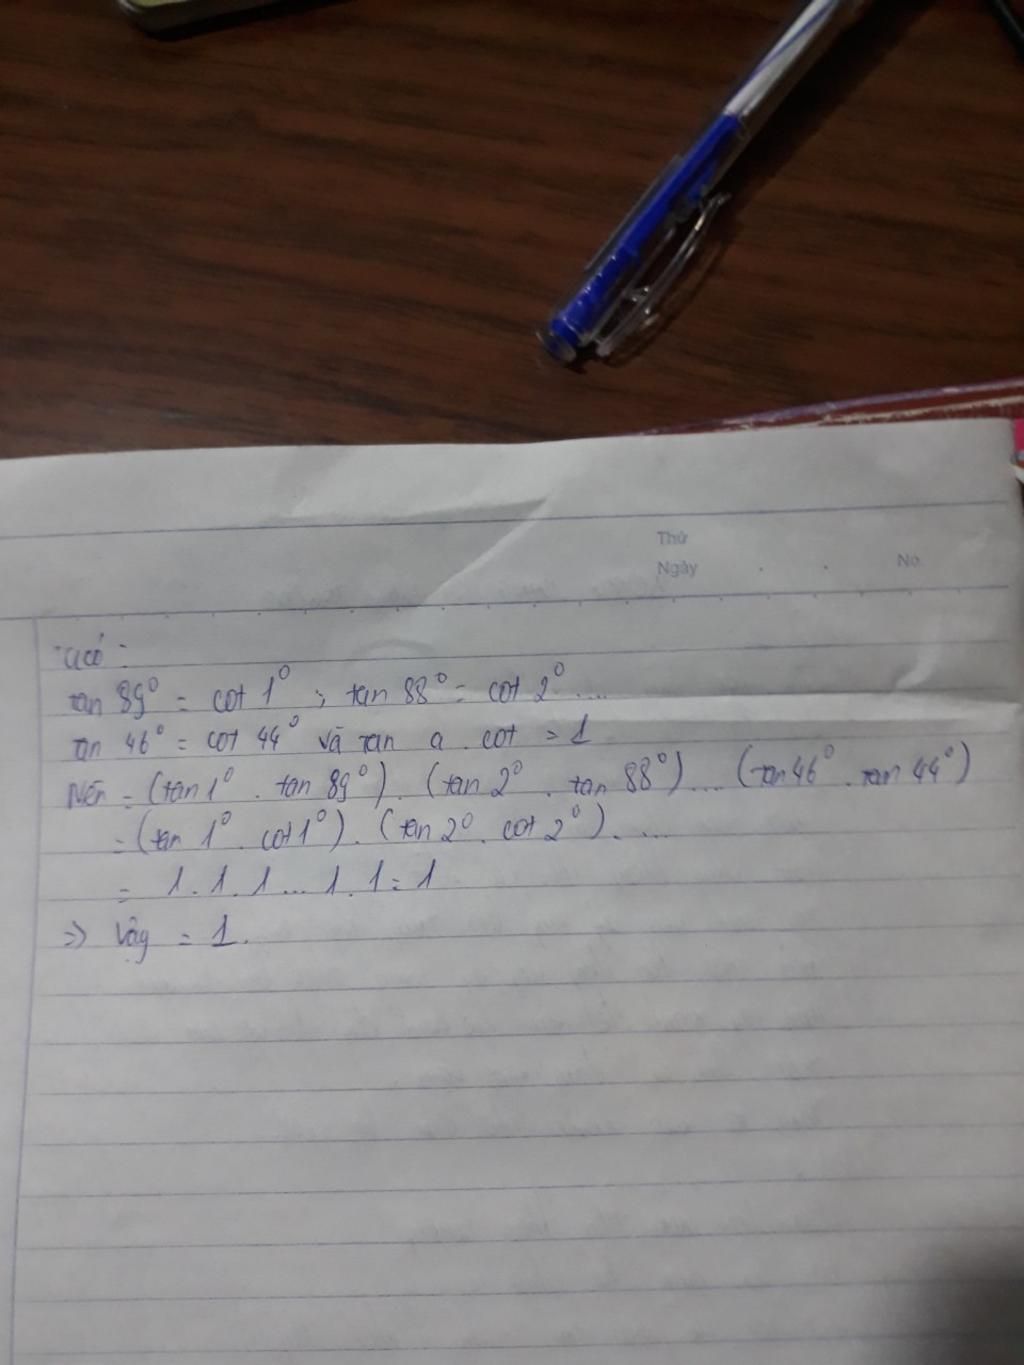 Thứ
Ngày . . No.
Ta có :
tan 89° = cot 1° ; tan 88° = cot 2° ....
tan 46° = cot 44° và tan a . cot = 1
Nên = (tan 1° . tan 89°) . (tan 2° . tan 88°) .... (tan 46° . tan 44°)
= (tan 1° . cot 1°) . (tan 2° . cot 2°) . ....
= 1 . 1 . 1 ... 1 . 1 = 1
=> Vậy = 1.